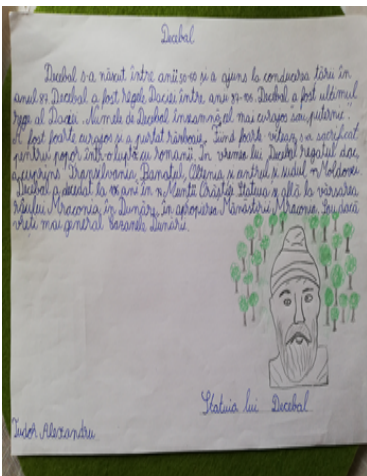 Decebal
Decebal s-a născut între anii 50-60 și a ajuns la conducerea țării în
anul 87. Decebal a fost regele Daciei între anii 87-106. Decebal a fost ultimul
rege al Daciei. Numele de Decebal înseamnă cel mai curajos sau puternic.
A fost foarte curajos și a purtat războaie. Fiind foarte viteaz, s-a sacrificat
pentru popor într-o luptă cu romanii. În vremea lui Decebal regatul dac
a cuprins Transilvania, Banatul, Oltenia și centrul și sudul Moldovei
Decebal a decedat la ani în Munții Orăștie. Statuia se află la vărsarea
râului Mraconia în Dunăre, în apropierea Mănăstirii Mraconia, sau dacă
vreți mai general Cazanele Dunării.
Statuia lui Decebal
Tudor Alexandru